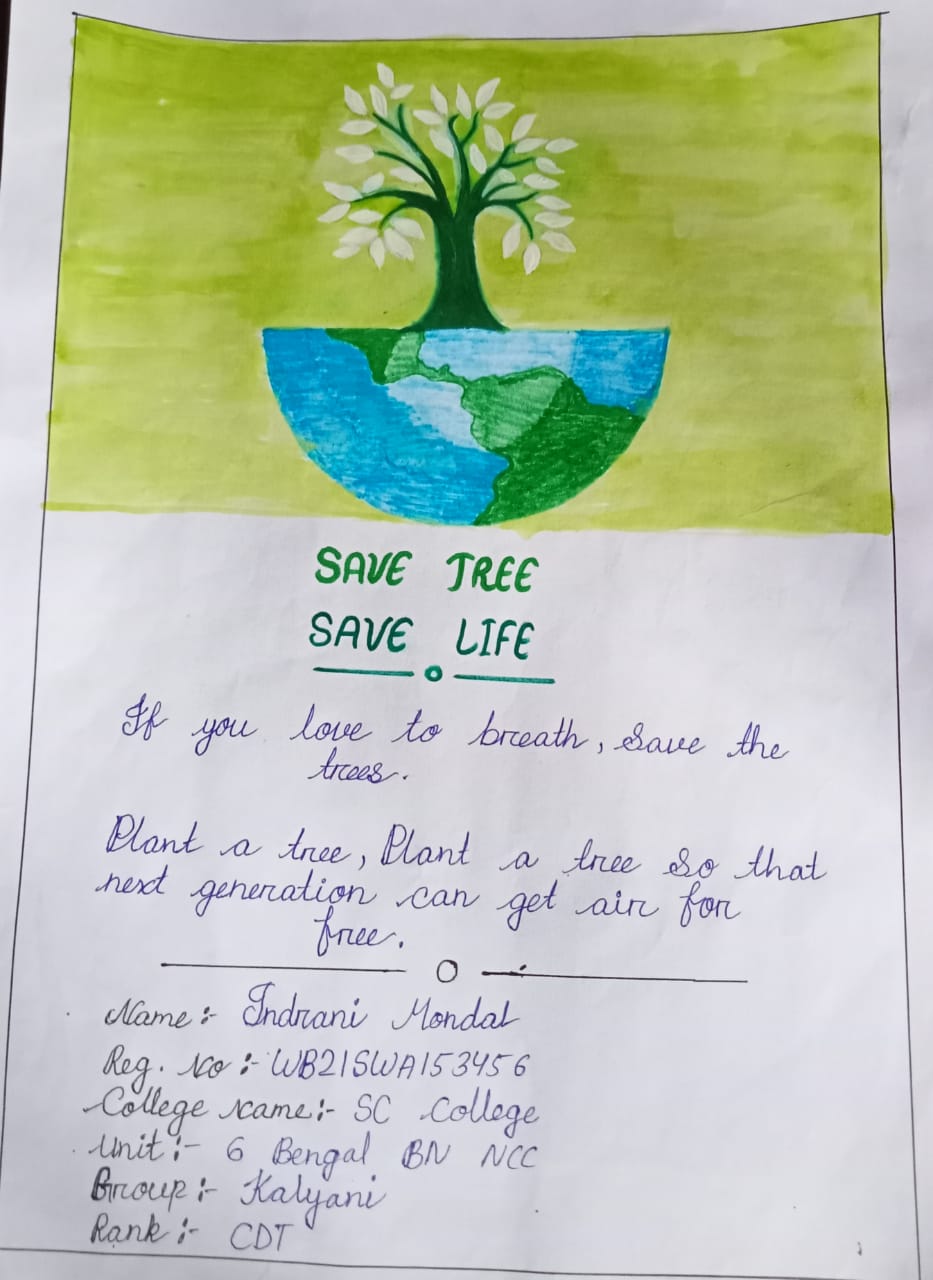 SAVE TREE
SAVE LIFE
If you love to breath, Save the
trees.
Plant a tree, Plant a tree so that
next generation can get air for
free.
Name:- Indrani Mondal
Reg. No:- WB21SWA153456
College Name:- SC College
Unit:- 6 Bengal BN NCC
Group:- Kalyani
Rank:- CDT